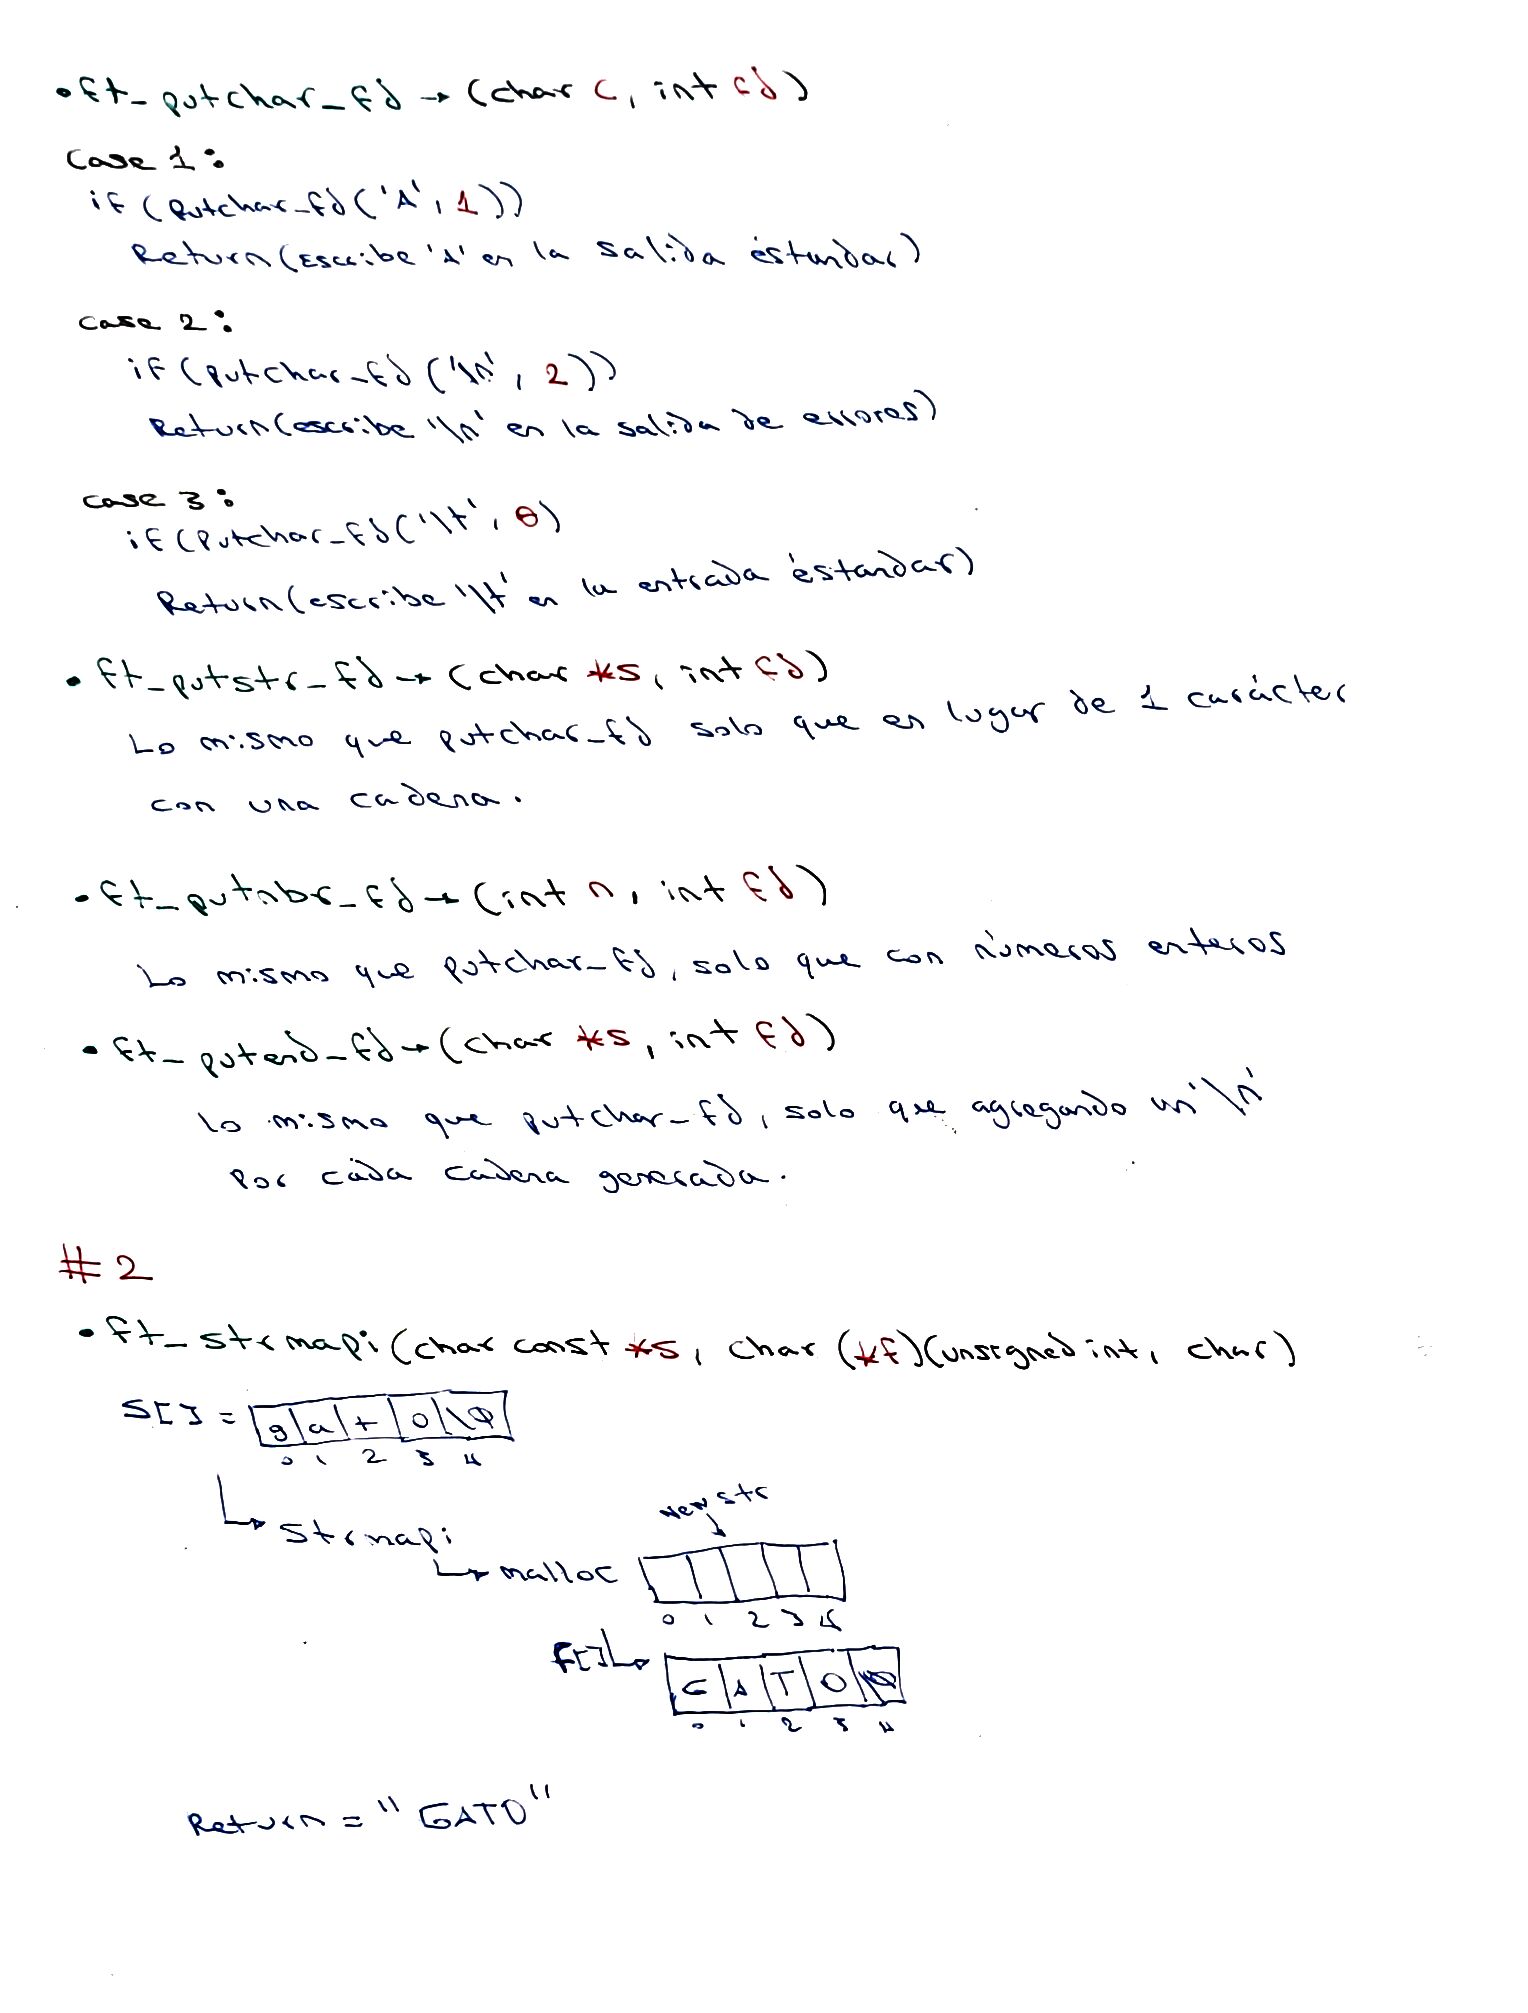 • ft_putchar_fd → (char c, int fd)
Case 1:
if (putchar_fd('A', 1))
Return(Escribe 'A' en la salida éstandar)
case 2:
if (putchar_fd ('\n', 2))
Return(escribe '\n' en la salida de errores)
case 3:
if (Putchar_fd('\t', 0)
Return(escribe '\t' en la entrada éstandar)
• ft_putstr_fd → (char *s, int fd)
Lo mismo que putchar_fd solo que en lugar de 1 carácter
con una cadena.
• ft_putnbr_fd → (int n, int fd)
Lo mismo que putchar_fd, solo que con números enteros
• ft_putend_fd → (char *s, int fd)
lo mismo que putchar_fd, solo que agregando un '\n'
por cada cadena generada.
#2
• ft_strmapi(char const *s, char (*f)(unsigned int, char)
S[] = g a t o \0
0 1 2 3 4
strmapi
New str
malloc
0 1 2 3 4
f[]
G A T O \0
0 1 2 3 4
Return = "GATO"